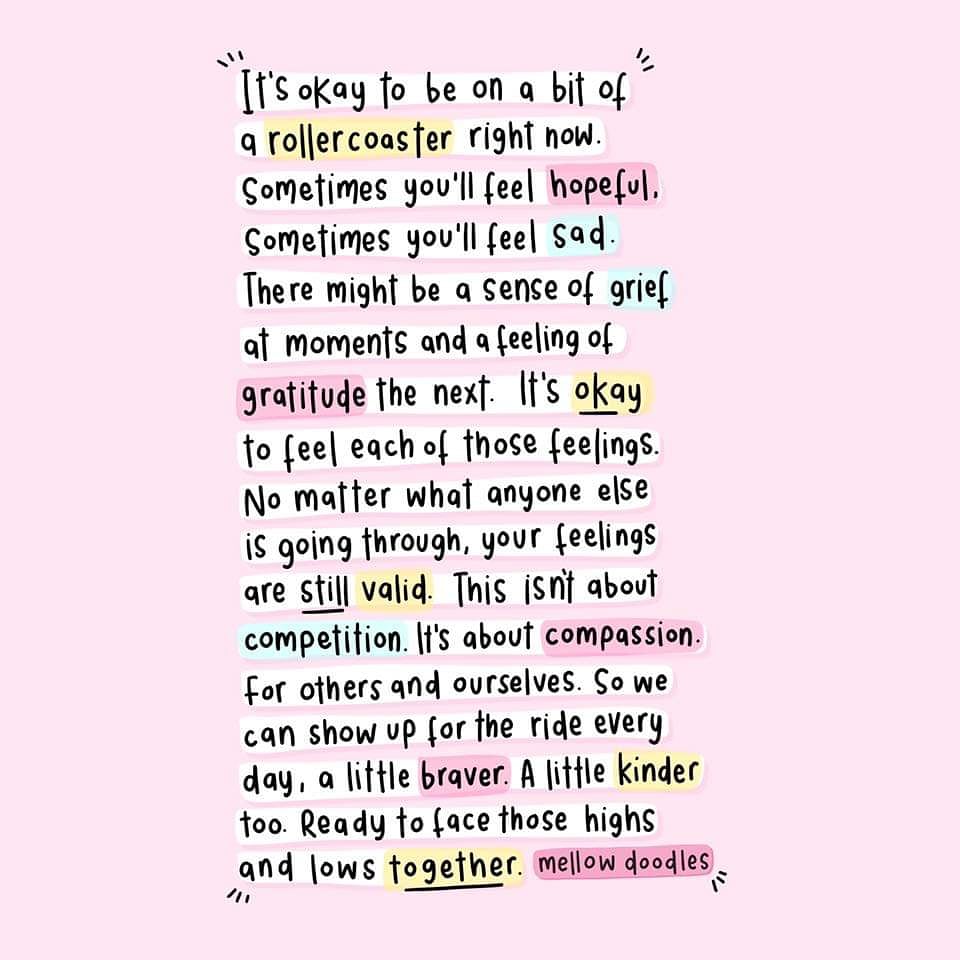 It's okay to be on a bit of
a rollercoaster right now.
Sometimes you'll feel hopeful,
Sometimes you'll feel sad.
There might be a sense of grief
at moments and a feeling of
gratitude the next. It's okay
to feel each of those feelings.
No matter what anyone else
is going through, your feelings
are still valid. This isn't about
competition. It's about compassion.
For others and ourselves. So we
can show up for the ride every
day, a little braver. A little kinder
too. Ready to face those highs
and lows together. mellow doodles